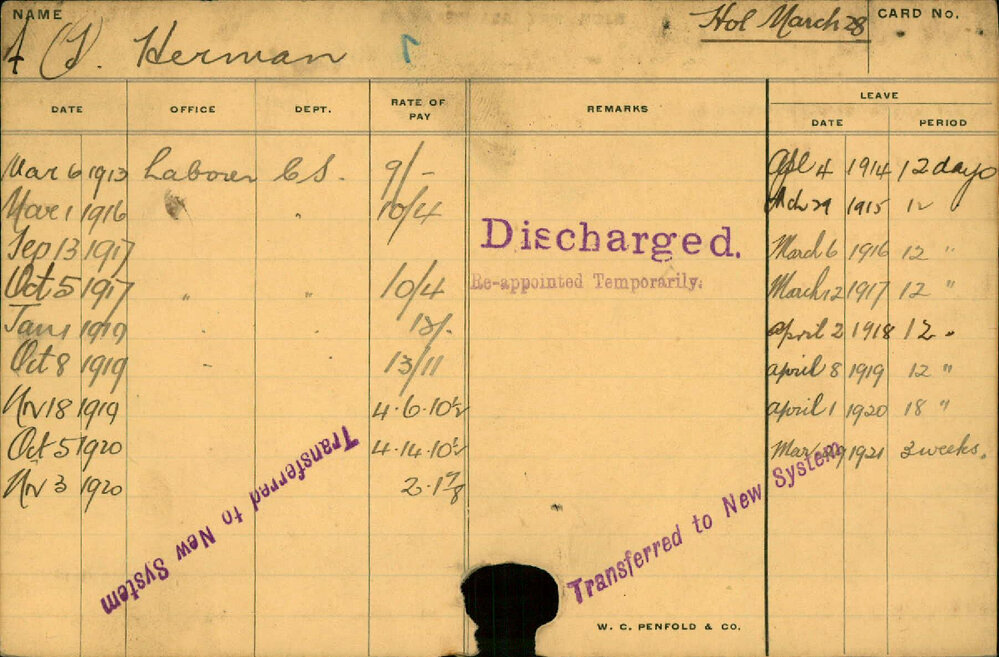 NAME Hol March 28 CARD No.
Herman
DATE OFFICE DEPT. RATE OF PAY REMARKS LEAVE
DATE PERIOD
Mar 6 1913 Laborer C.S. 9/- Apl 4 1914 12 days
Mar 1 1916 " 10/4 Mch 29 1915 12
Sep 13 1917 Discharged. March 6 1916 12 "
Oct 5 1917 " " 10/4 Re-appointed Temporarily. March 12 1917 12 "
Jan 1 1919 12/- April 2 1918 12 "
Oct 8 1919 13/11 April 8 1919 12 "
Nov 18 1919 4.6.10½ April 1 1920 18 "
Oct 5 1920 4.14.10½ Mar 1921 3 weeks.
Nov 3 1920
Transferred to New System
Transferred to New System
W. C. PENFOLD & CO.